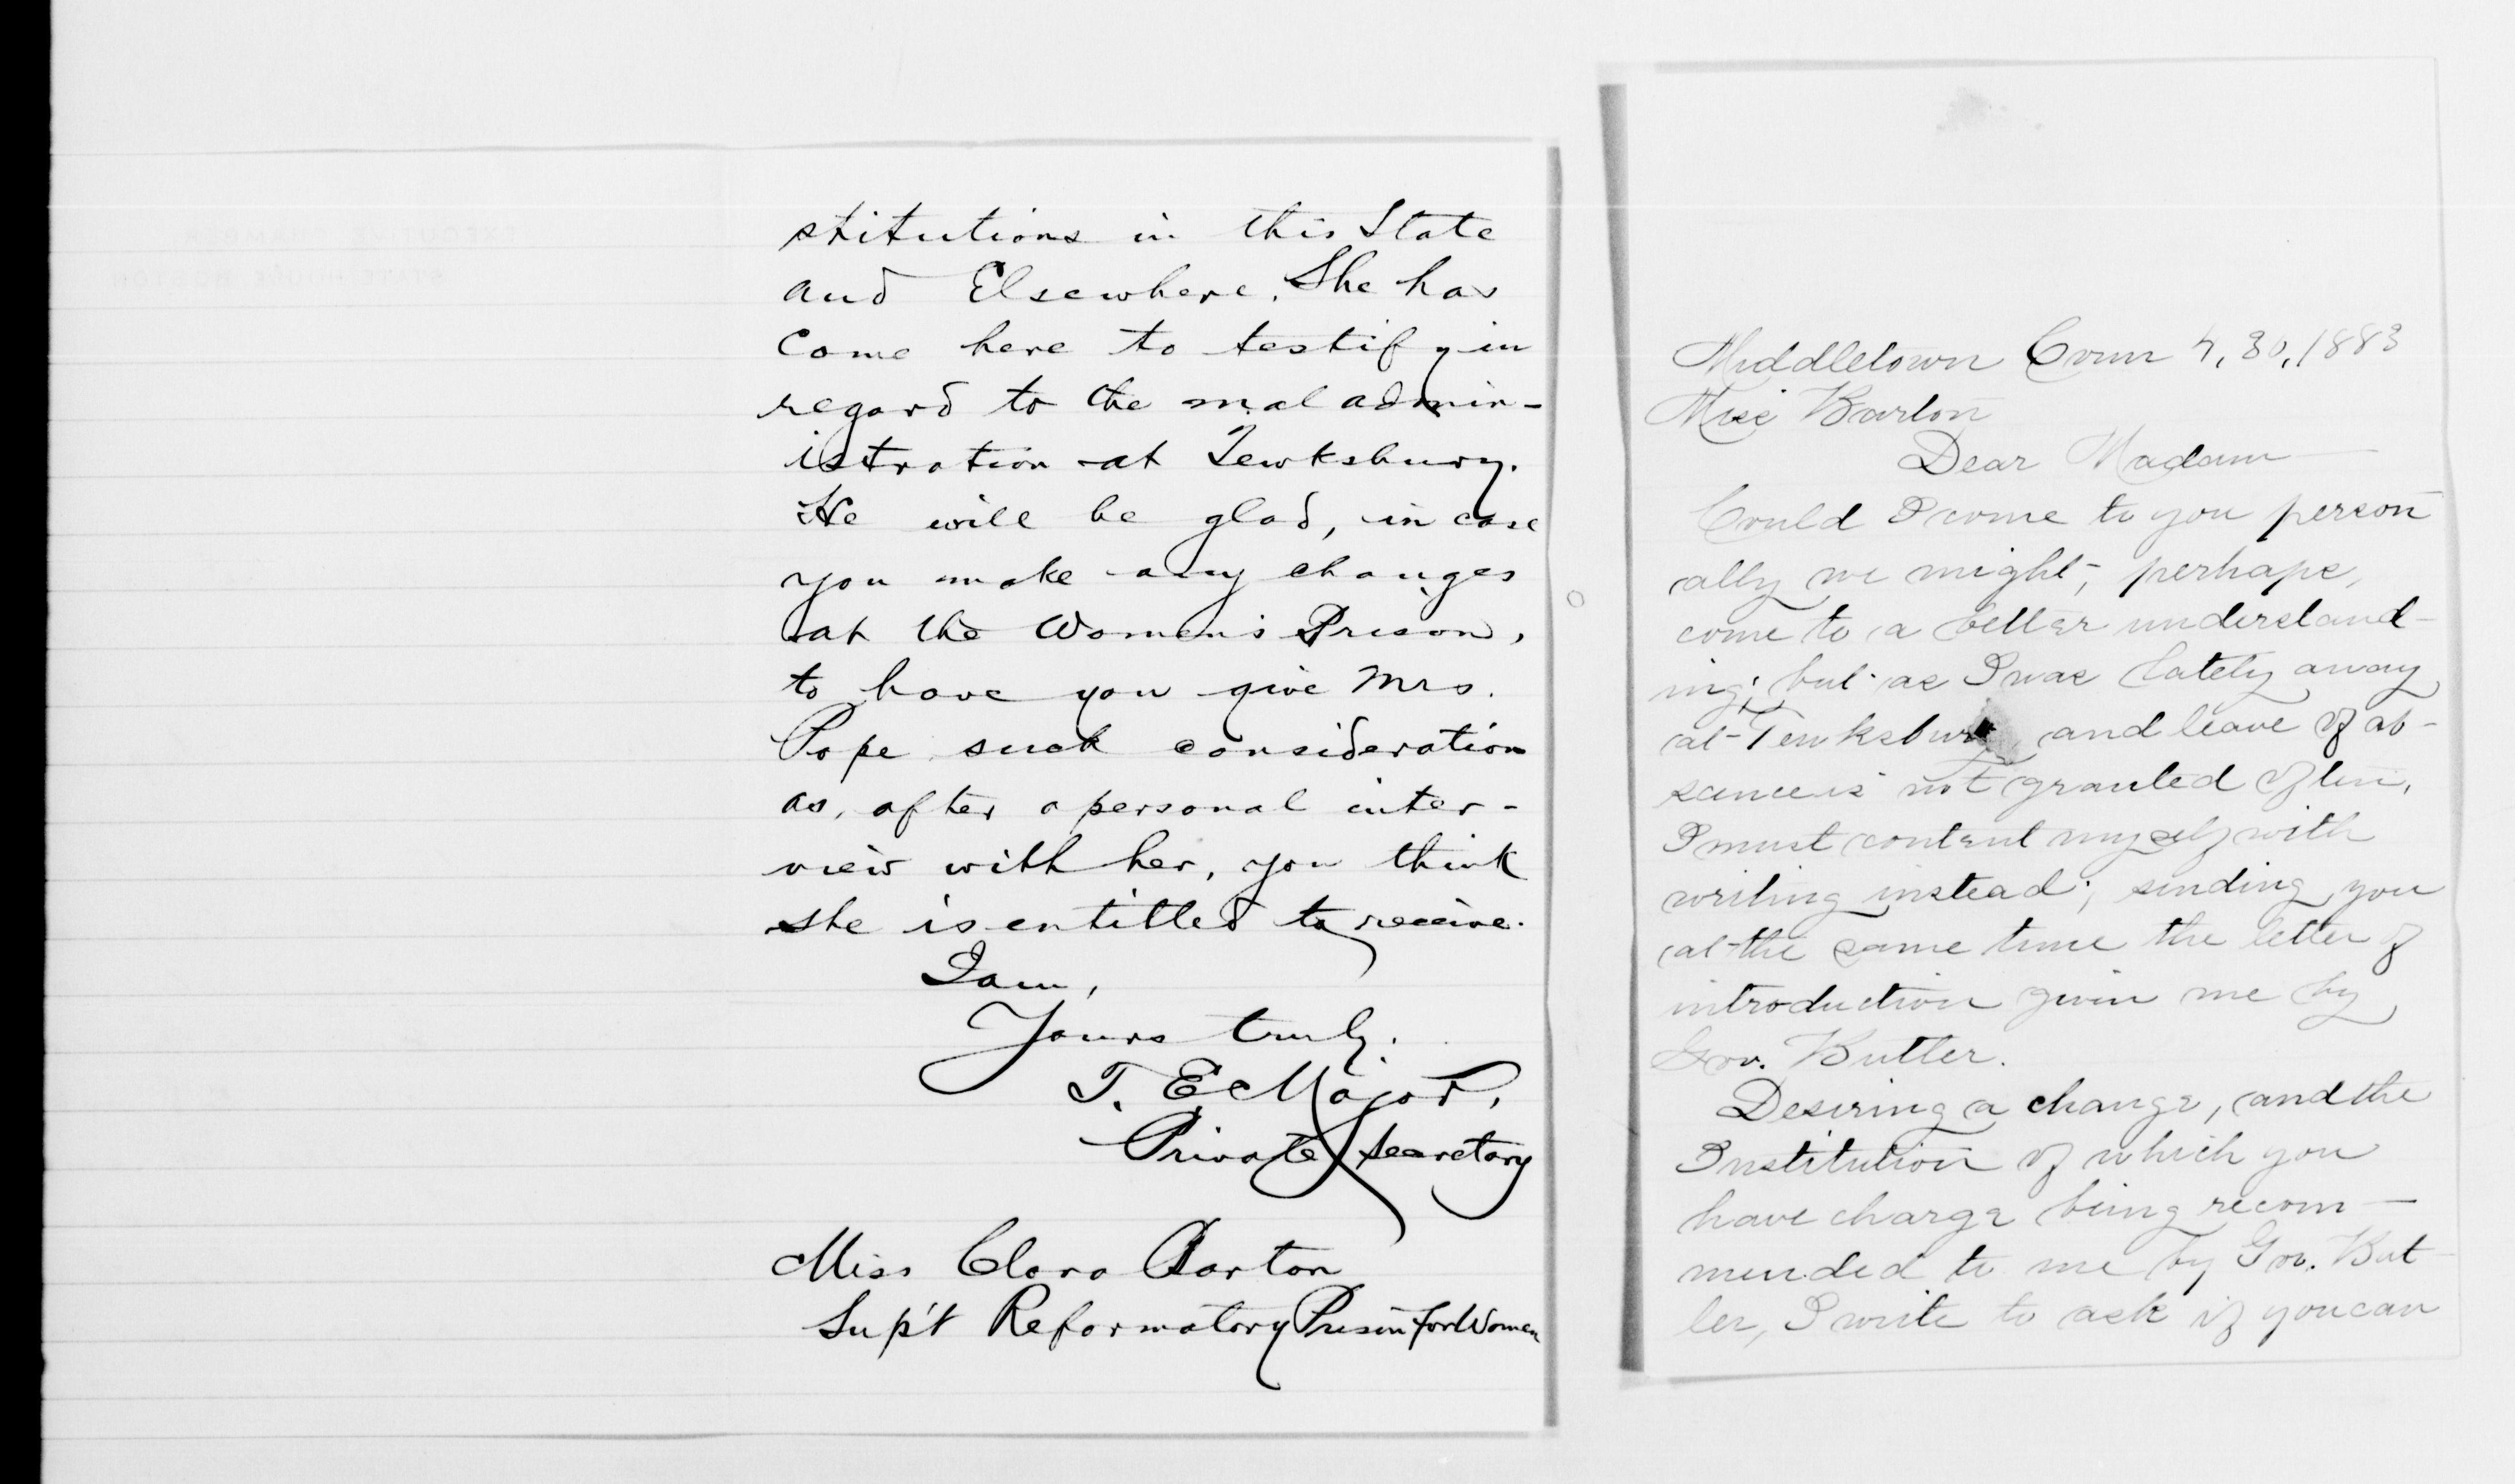 EXECUTIVE CHAMBER
STATE HOUSE BOSTON
stitutions in this State
and Elsewhere. She has
Come here to testify in
regard to the mal admin-
istration at Tewksbury.
He will be glad, in case
you make any changes
at the Women's Prison,
to have you give Mrs.
Pope such consideration
as, after a personal inter-
view with her, you think
she is entitled to receive.
I am,
Yours truly.
T. E. Major,
Private Secretary
Miss Clara Barton
Sup't Reformatory Prison for Women
Middletown Conn 4, 30, 1883
Miss Barton
Dear Madam
Could I come to you person
ally we might, perhaps,
come to a better understand-
ing; but as I was lately away
at Tewksbury and leave of ab-
scence is not granted often,
I must content myself with
writing instead; sending you
at the same time the letter of
introduction given me by
Gov. Butler.
Desiring a change, and the
Institution of which you
have charge being recom-
mended to me by Gov. But
ler, I write to ask if you can